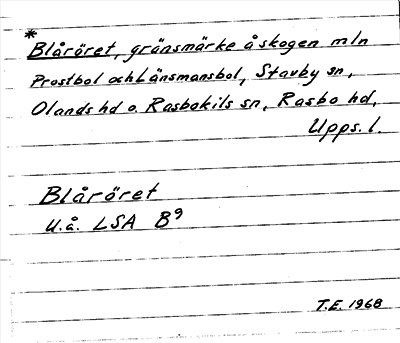 *
Blåröret, gränsmärke å skogen mln
Prostbol och Länsmansbol, Stavby sn,
Olands hd o. Rasbokils sn, Rasbo hd,
Upps. l.
Blåröret
U.å. LSA B⁹
T.E. 1968